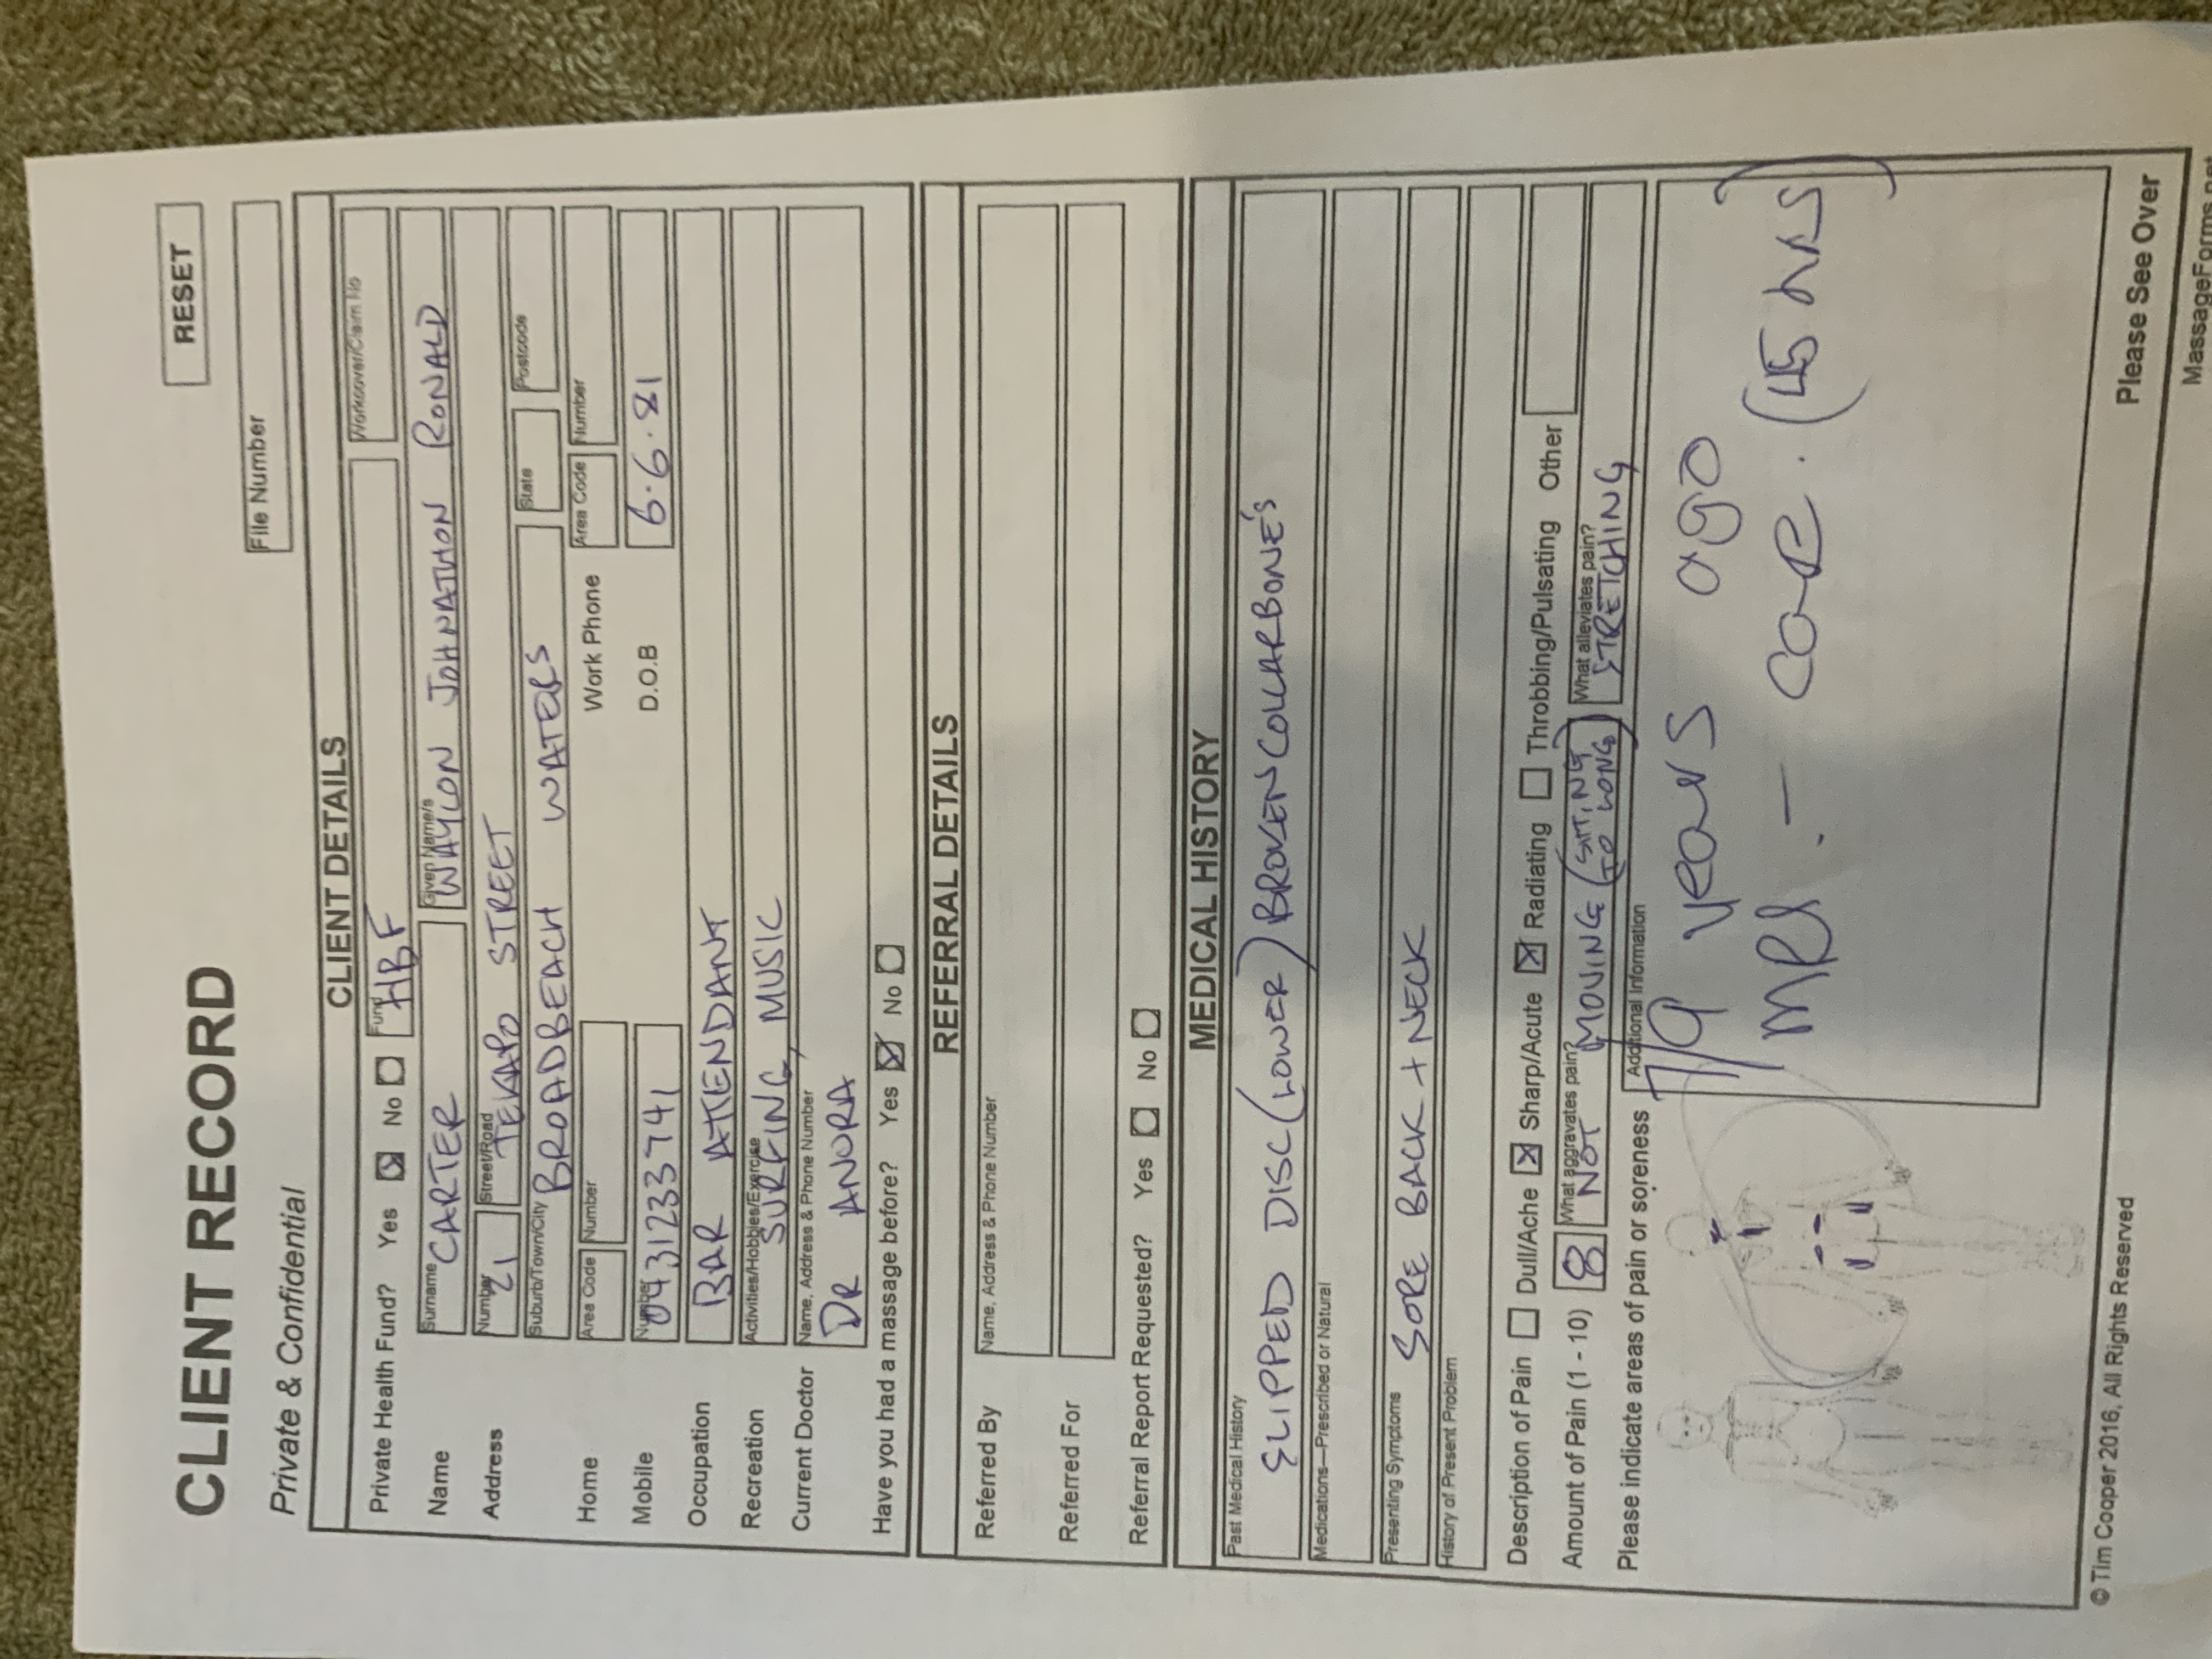 CLIENT RECORD
RESET
Private & Confidential
File Number
CLIENT DETAILS
Private Health Fund? Yes ☒ No ☐ Fund HBF Workcover/Claim No
Name Surname CARTER Given Name/s WAYLON JOHNATHON RONALD
Address Number 21 Street/Road TEKAPO STREET
Suburb/Town/City BROADBEACH WATERS State Postcode
Home Area Code Number Work Phone Area Code Number
Mobile Number 0431233741 D.O.B 6.6.81
Occupation BAR ATTENDANT
Recreation Activities/Hobbies/Exercise SURFING, MUSIC
Current Doctor Name, Address & Phone Number DR ANORA
Have you had a massage before? Yes ☒ No ☐
REFERRAL DETAILS
Referred By Name, Address & Phone Number
Referred For
Referral Report Requested? Yes ☐ No ☐
MEDICAL HISTORY
Past Medical History SLIPPED DISC (LOWER) BROKEN COLLARBONE'S
Medications—Prescribed or Natural
Presenting Symptoms SORE BACK + NECK
History of Present Problem
Description of Pain ☐ Dull/Ache ☒ Sharp/Acute ☒ Radiating ☐ Throbbing/Pulsating Other
Amount of Pain (1 - 10) 8 What aggravates pain? NOT MOVING (SITTING TO LONG) What alleviates pain? STRETCHING
Please indicate areas of pain or soreness Additional Information
years ago
MRI - (45 hrs)
Please See Over
© Tim Cooper 2016, All Rights Reserved
MassageForms.net